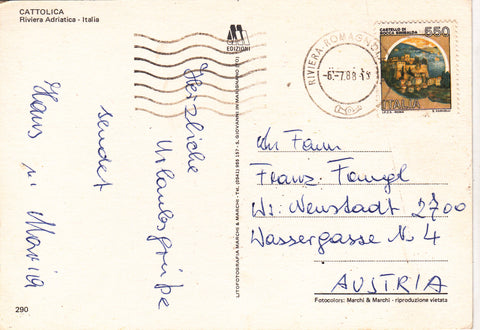 CATTOLICA
Riviera Adriatica - Italia
290
Herzliche
Urlaubsgrüße
sendet
Hans u. Maria
EDIZIONI
LITOFOTOGRAFIA MARCHI & MARCHI - TEL. (0541) 985 157 - S. GIOVANNI IN MARIGNANO (FO)
RIVIERA ROMAGNO
-6.-7.88-
550
CASTELLO DI
ROCCA SINIBALDA
ITALIA
An Fam
Franz
Wr. Neustadt 2700
Wassergasse Nr. 4
AUSTRIA
Fotocolors: Marchi & Marchi - riproduzione vietata